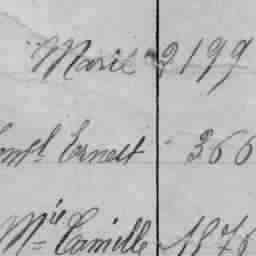 Marie 2199
Ernest 366
Mie Camille 1876